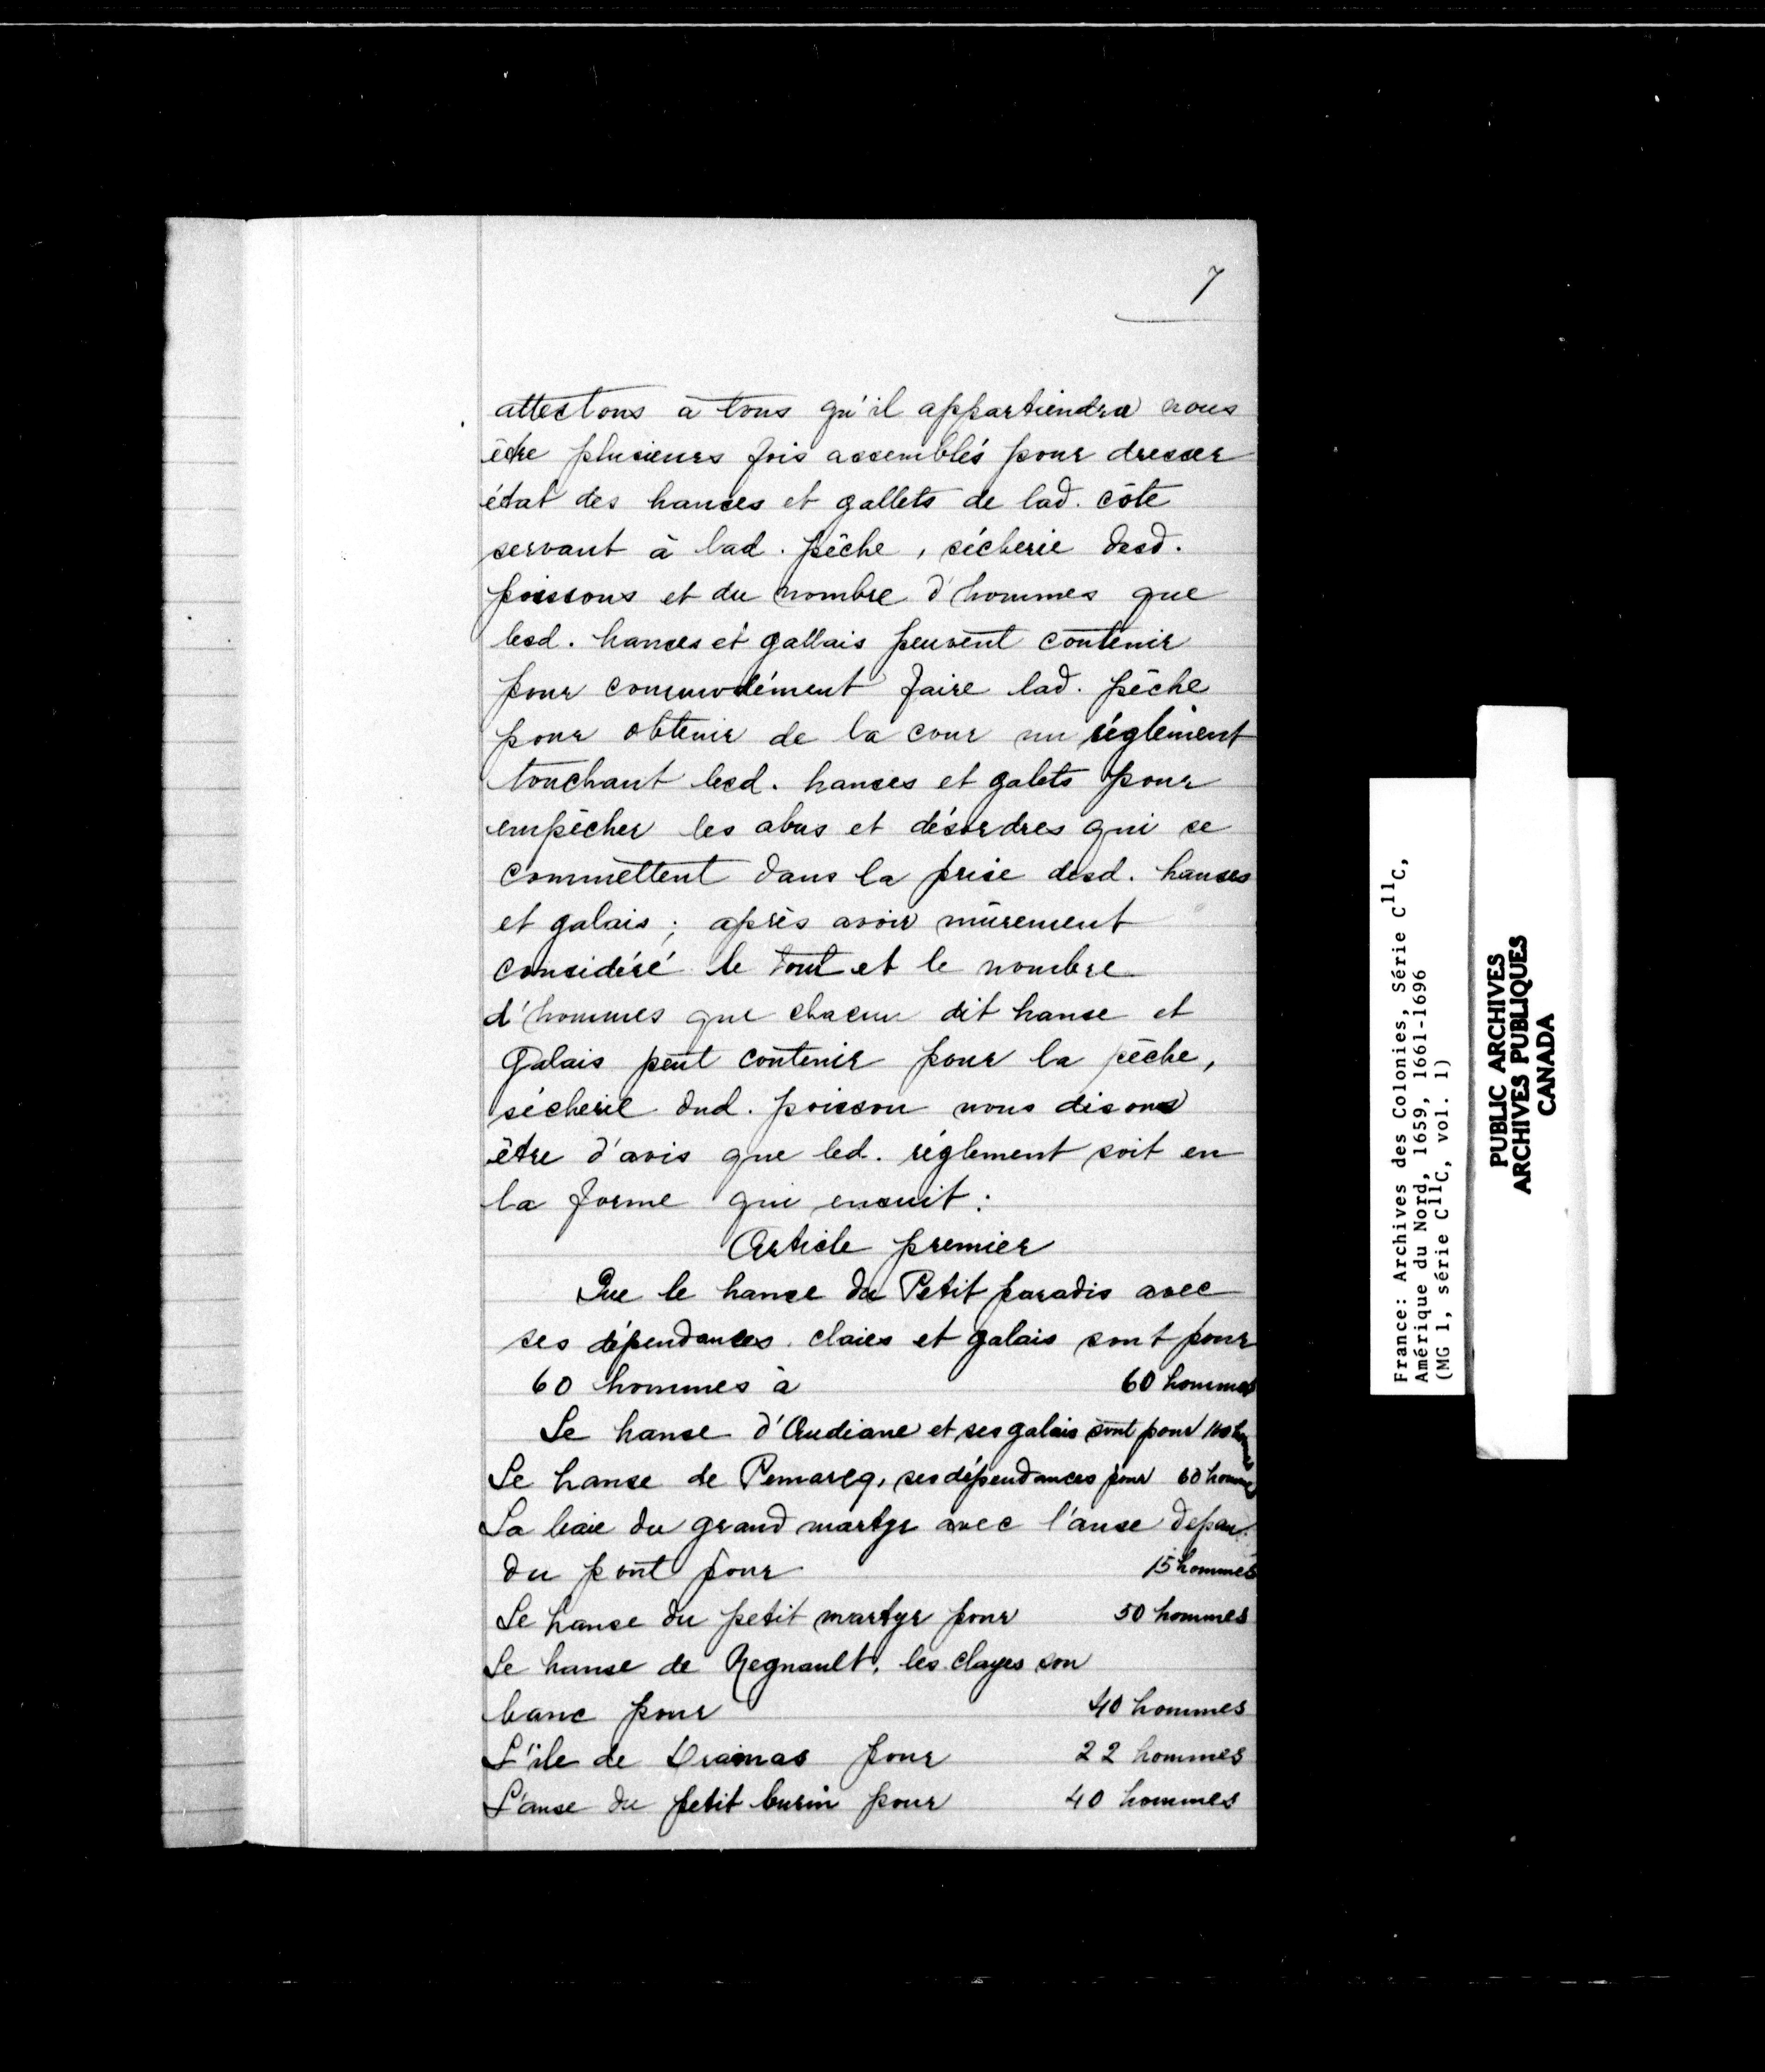 7
attestons à tous qu'il appartiendra nous
être plusieurs fois assemblés pour dresser
état des hanses et gallets de lad. côte
servant à lad. pêche, sécherie desd.
poissons et du nombre d'hommes que
lesd. hanses et gallais peuvent contenir
pour commodément faire lad. pêche
pour obtenir de la cour un réglement
touchant lesd. hanses et galets pour
empêcher les abus et désordres qui se
commettent dans la prise desd. hanses
et galais; après avoir mûrement
considéré le tout et le nombre
d'hommes que chacun dit hanse et
galais peut contenir pour la pêche,
sécherie dud. poisson nous disons
être d'avis que led. réglement soit en
la forme qui ensuit:
Article premier
Que le hanse du Petit paradis avec
ses dépendances claies et galais sont pour
60 hommes à 60 hommes
Le hanse d'Audiane et ses galais sont pour
Le hanse de Pemarcq, ses dépendances pour 60 hommes
La baie du grand martyr avec l'anse
du pont pour 15 hommes
Le hanse du petit martyr pour 50 hommes
Le hanse de Regnault, les clayes son
banc pour 40 hommes
L'île de pour 22 hommes
L'anse du petit burin pour 40 hommes
France: Archives des Colonies, Série C11C,
Amérique du Nord, 1659, 1661-1696
(MG 1, série C11C, vol. 1)
PUBLIC ARCHIVES
ARCHIVES PUBLIQUES
CANADA